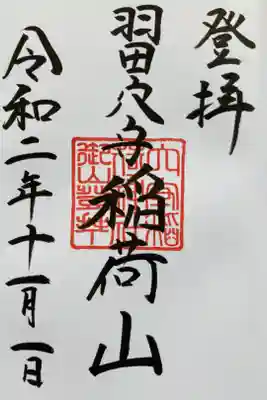 登拝
羽田穴守稲荷山
令和二年十一月一日